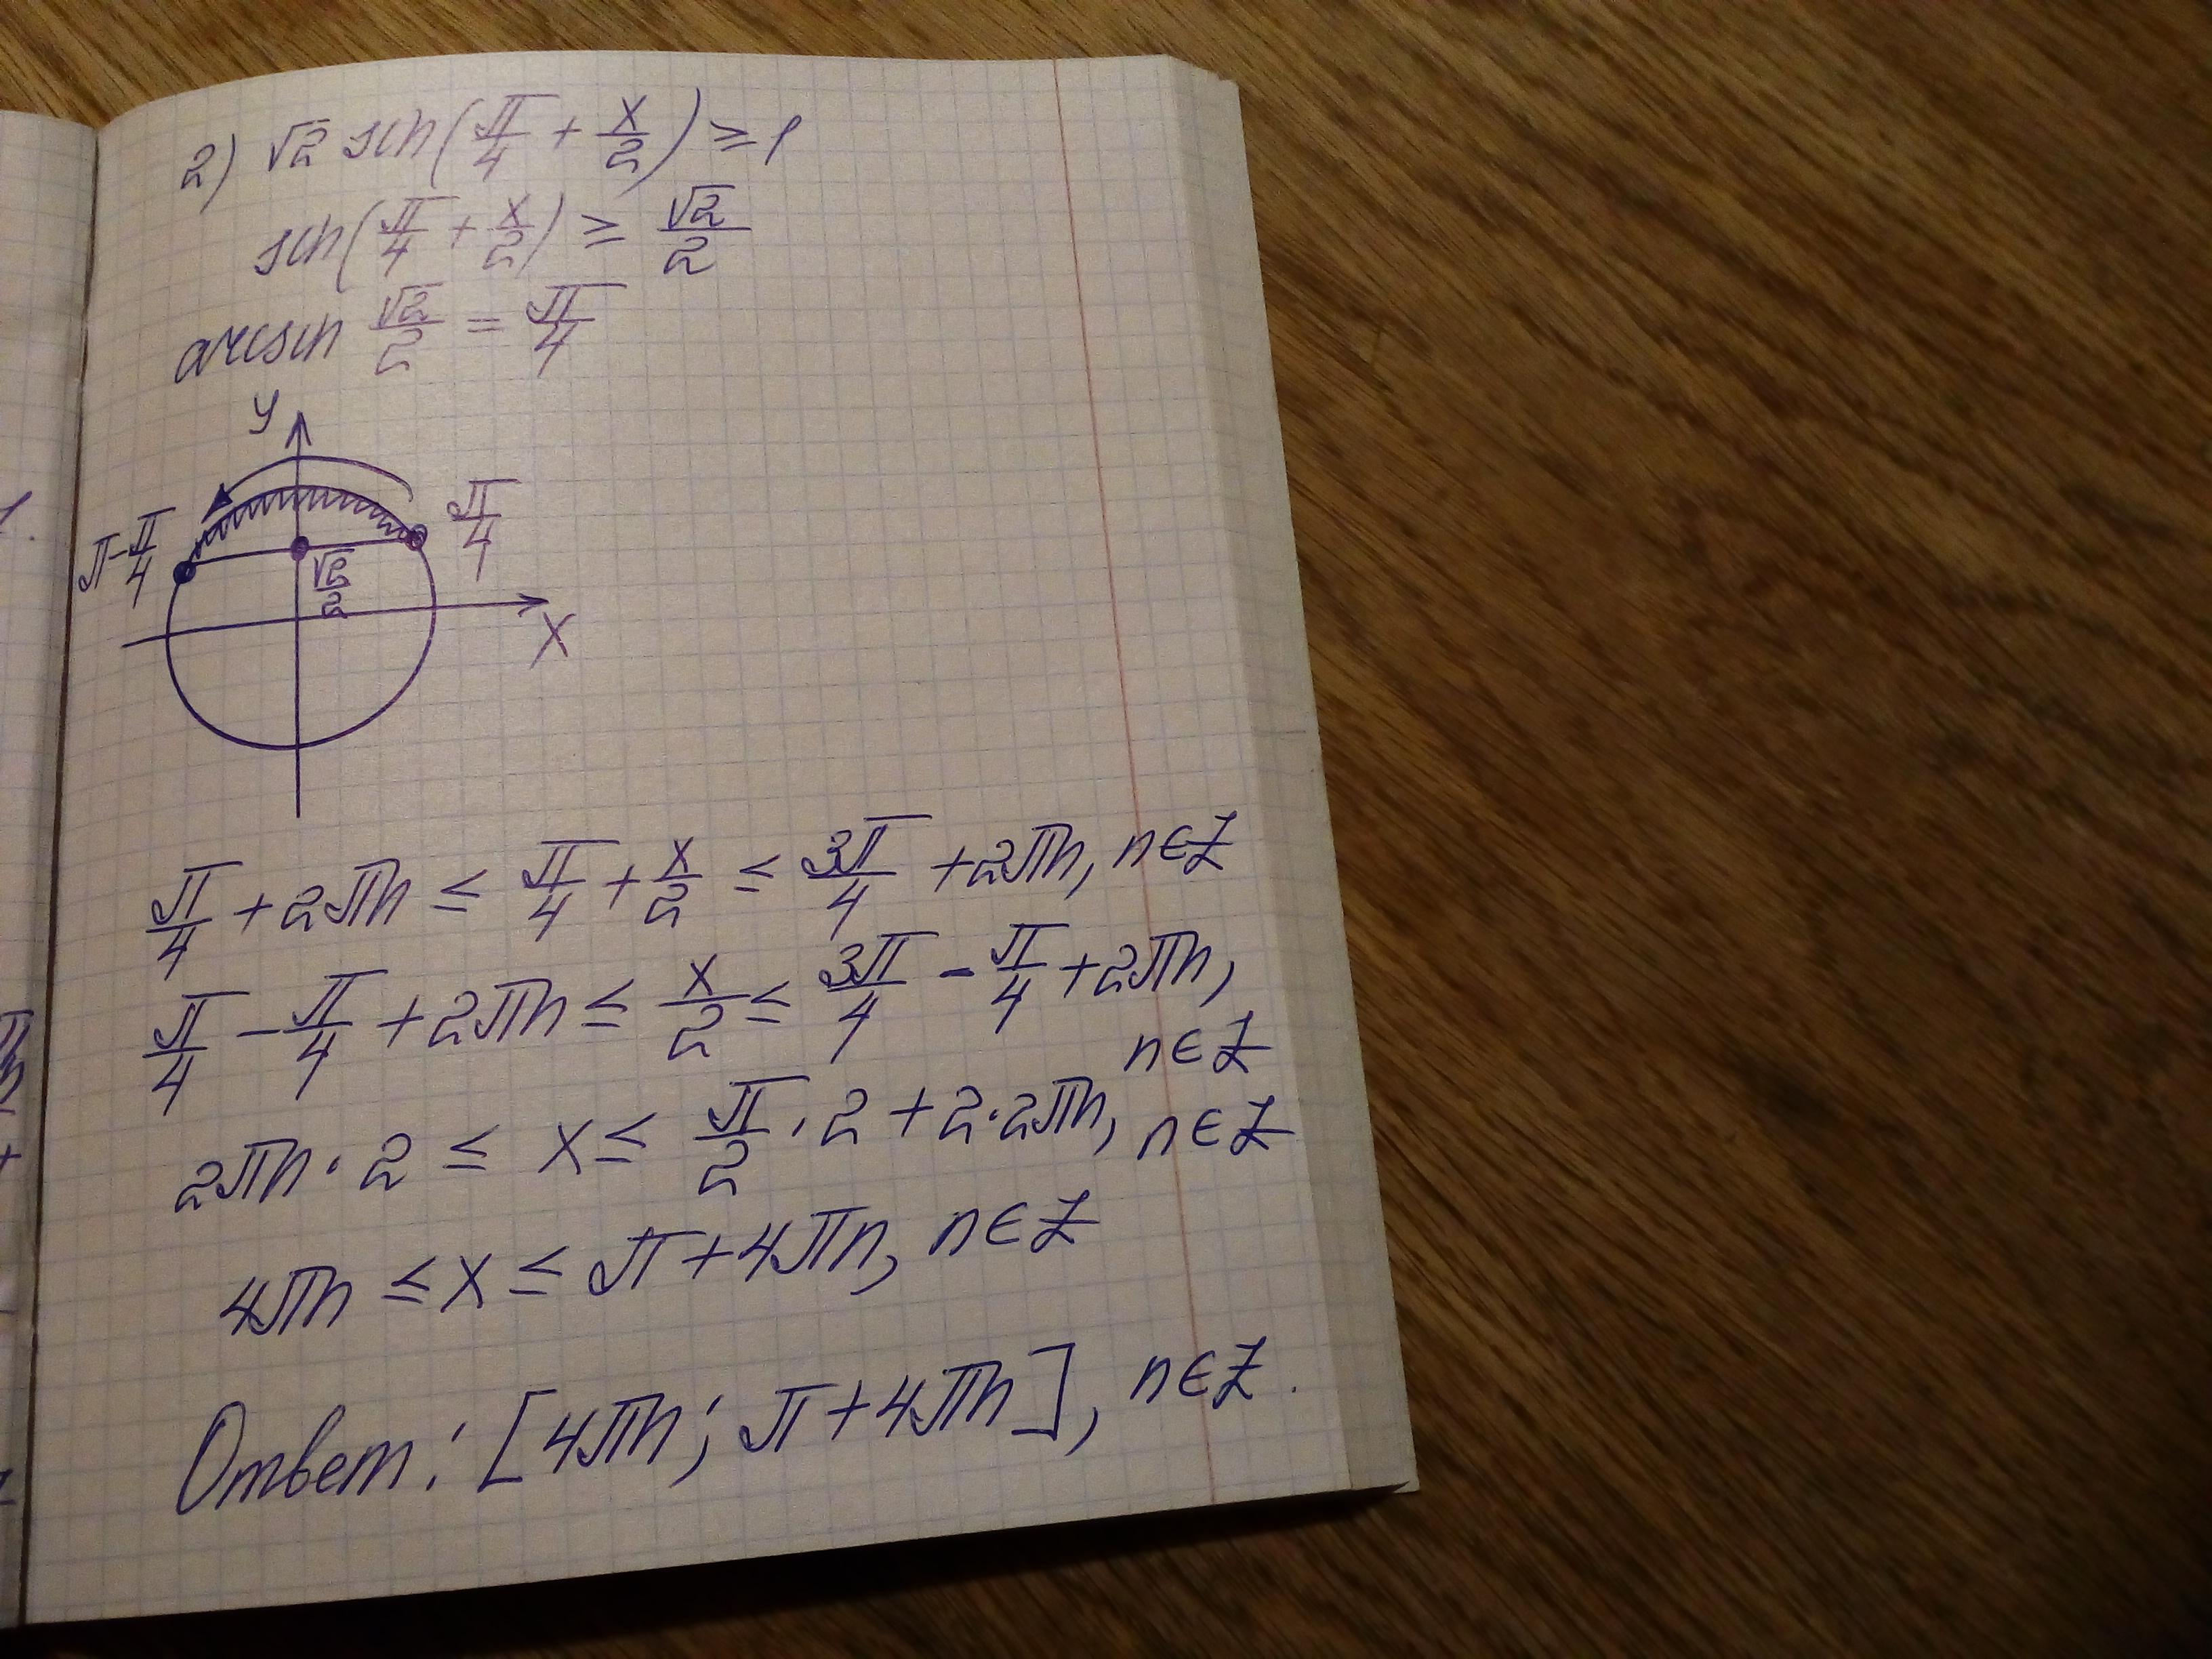 2) √2 sin(π/4 + x/2) ≥ 1
sin(π/4 + x/2) ≥ √2/2
arcsin √2/2 = π/4
y
π-π/4
π/4
√2/2
x
π/4 + 2πn ≤ π/4 + x/2 ≤ 3π/4 + 2πn, n∈Z
π/4 - π/4 + 2πn ≤ x/2 ≤ 3π/4 - π/4 + 2πn,
n∈Z
2πn · 2 ≤ x ≤ π/2 · 2 + 2·2πn, n∈Z
4πn ≤ x ≤ π + 4πn, n∈Z
Ответ: [4πn; π+4πn], n∈Z.